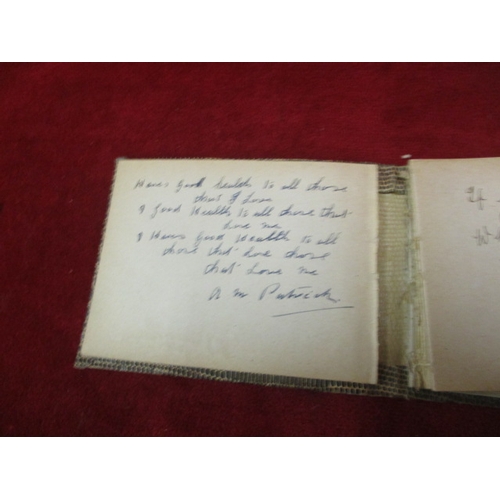 Heres Good health to all those
that I love
& Good Wealth to all those that
love me
& Heres Good Wealth to all
those that love those
that love me
A M Patrick
If